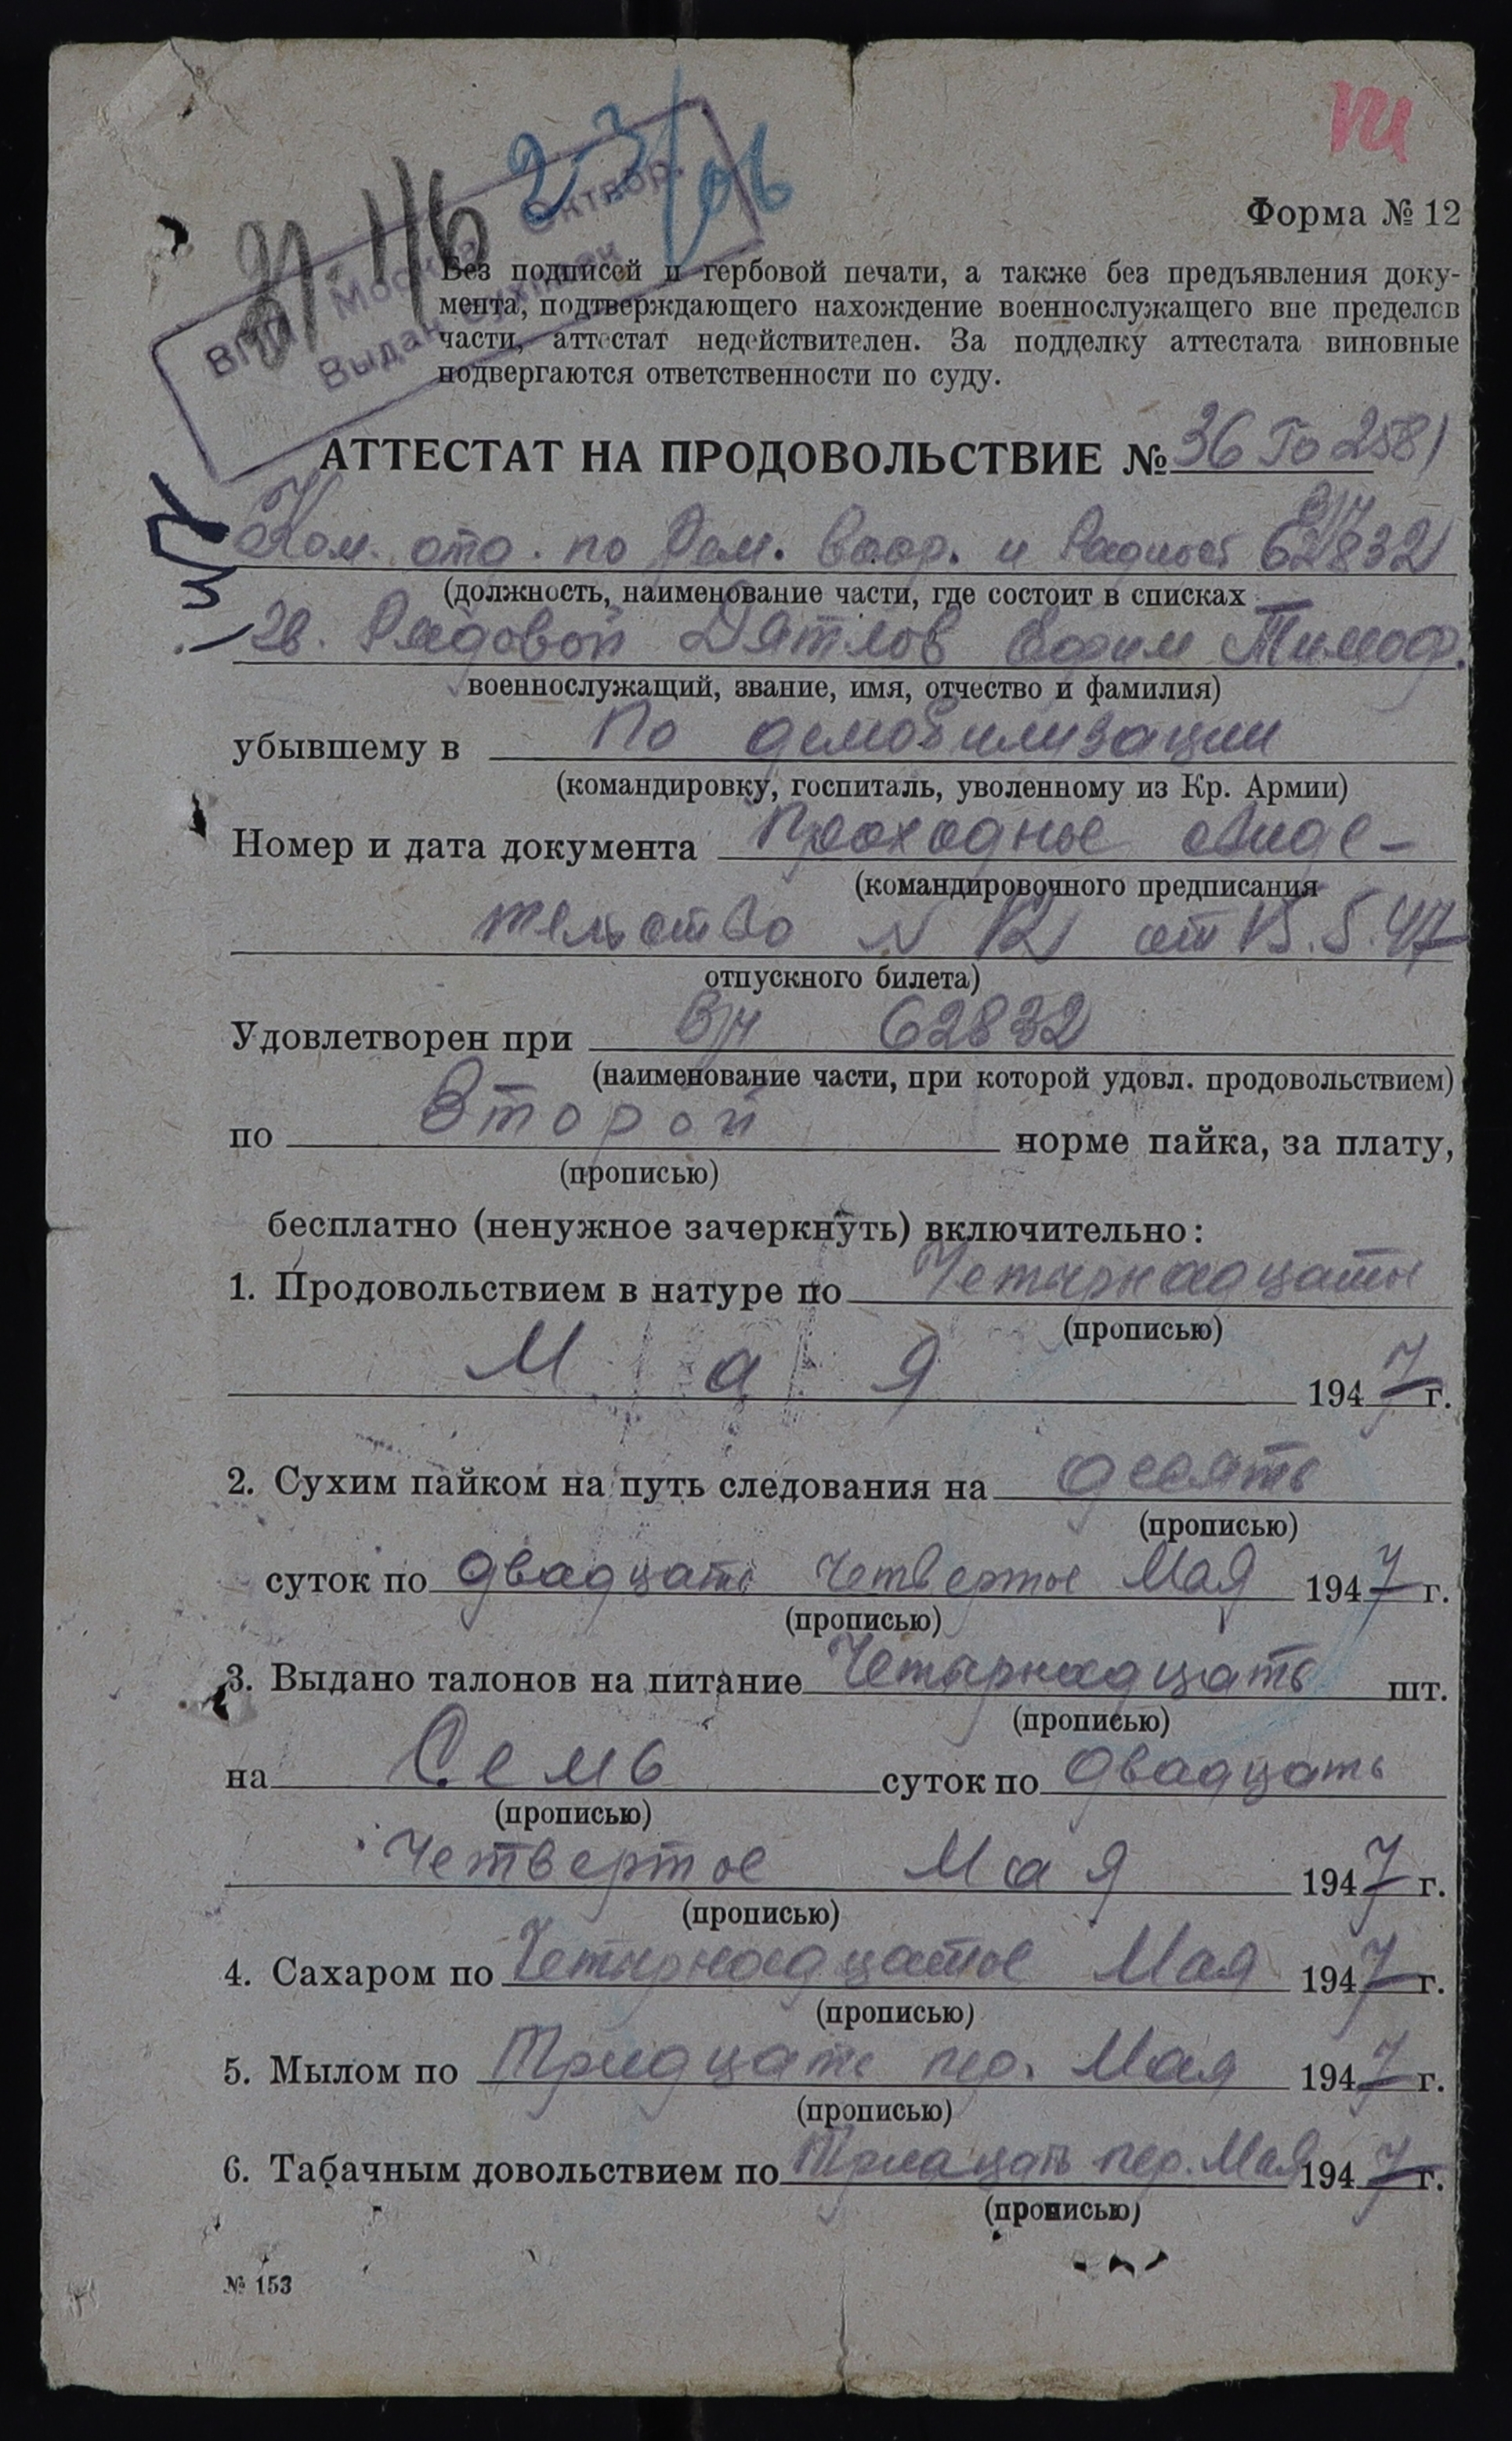 23/06
21.46
ВПП Москва Октябр.
Выдан сухпаек
Форма № 12
Без подписей и гербовой печати, а также без предъявления доку-
мента, подтверждающего нахождение военнослужащего вне пределов
части, аттестат недействителен. За подделку аттестата виновные
подвергаются ответственности по суду.
АТТЕСТАТ НА ПРОДОВОЛЬСТВИЕ № 36 Го 2581
Ком. отд. по Рем. Воор. и в/ч 62832
(должность, наименование части, где состоит в списках
Гв. Рядовой Дятлов Ефим Тимоф.
военнослужащий, звание, имя, отчество и фамилия)
убывшему в По демобилизации
(командировку, госпиталь, уволенному из Кр. Армии)
Номер и дата документа Проходное свиде-
(командировочного предписания
тельство N 12 от 15.5.47
отпускного билета)
Удовлетворен при В/ч 62832
(наименование части, при которой удовл. продовольствием)
по Второй норме пайка, за плату,
(прописью)
бесплатно (ненужное зачеркнуть) включительно:
1. Продовольствием в натуре по Четырнадцатое
(прописью)
Мая 1947 г.
2. Сухим пайком на путь следования на десять
(прописью)
суток по двадцать Четвертое Мая 1947 г.
(прописью)
3. Выдано талонов на питание Четырнадцать шт.
(прописью)
на Семь суток по двадцать
(прописью)
Четвертое Мая 1947 г.
(прописью)
4. Сахаром по Четырнадцатое Мая 1947 г.
(прописью)
5. Мылом по Тридцать пер. Мая 1947 г.
(прописью)
6. Табачным довольствием по Тридцать пер. Мая 1947 г.
(прописью)
№ 153